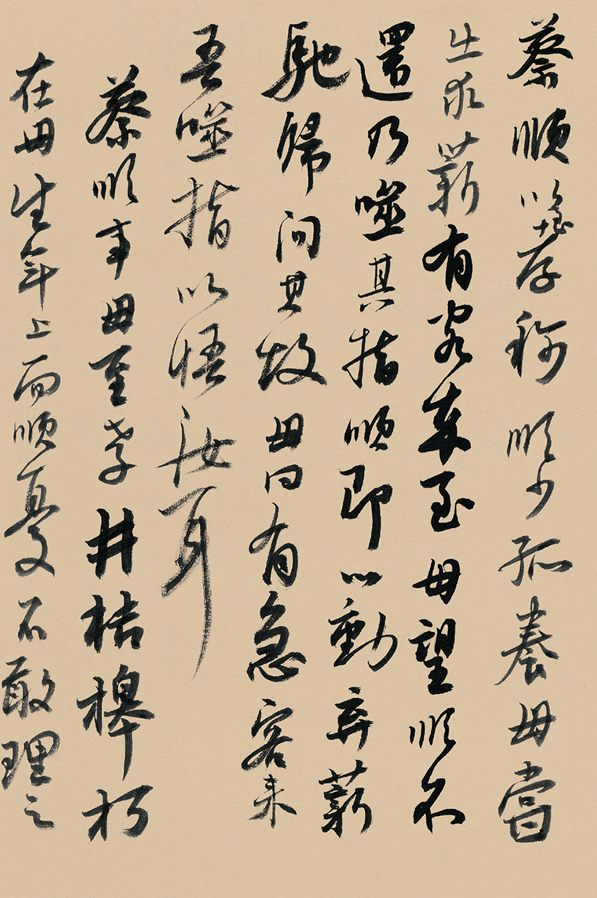 蔡順以至孝稱順少孤養母嘗
出求薪有客卒至母望順不
還乃噬其指順即心動弃薪
馳歸問其故母曰有急客来
吾噬指以悟汝耳
蔡順事母至孝井桔槔朽
在母生年上而順憂不敢理之